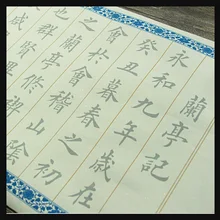 蘭亭記
永和九年歲在
癸丑暮春之初
會於會稽山陰
之蘭亭修禊
群賢